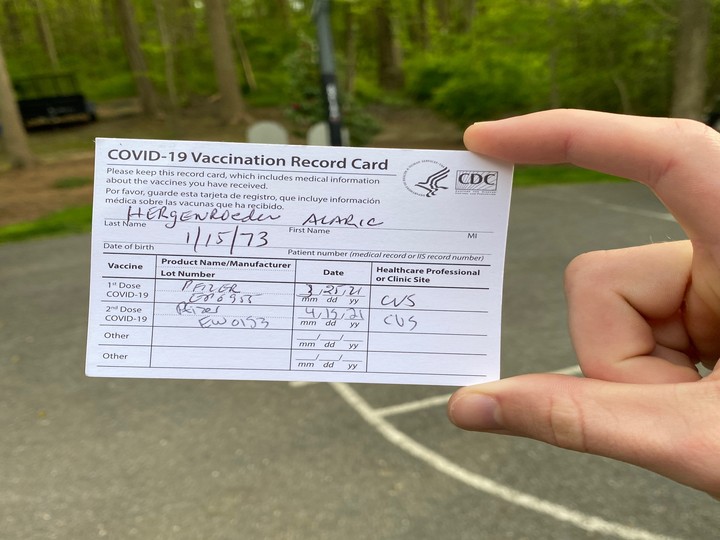 COVID-19 Vaccination Record Card
Please keep this record card, which includes medical information
about the vaccines you have received.
Por favor, guarde esta tarjeta de registro, que incluye información
médica sobre las vacunas que ha recibido.
HERgENRoeder ALARIC
Last Name First Name MI
1/15/73
Date of birth Patient number (medical record or IIS record number)
Vaccine Product Name/Manufacturer Lot Number Date Healthcare Professional or Clinic Site
1st Dose COVID-19 PFIZER 3/25/21 mm dd yy CVS
2nd Dose COVID-19 Pfizer EW0153 4/15/21 mm dd yy CVS
Other mm dd yy
Other mm dd yy
CDC